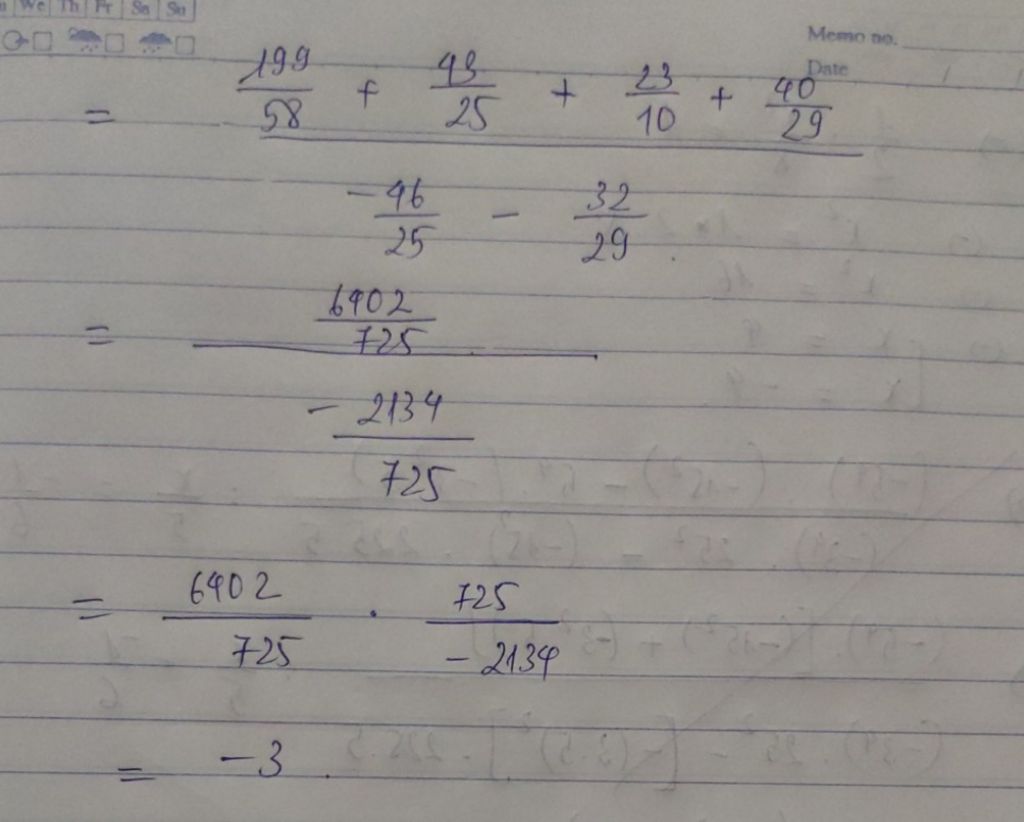 We Th Fr Sa Su
Memo no.
Date / /
= \frac{\frac{199}{58} + \frac{43}{25} + \frac{23}{10} + \frac{40}{29}}{-\frac{46}{25} - \frac{32}{29}}
= \frac{\frac{6402}{725}}{-\frac{2134}{725}}
= \frac{6402}{725} . \frac{725}{-2134}
= -3.